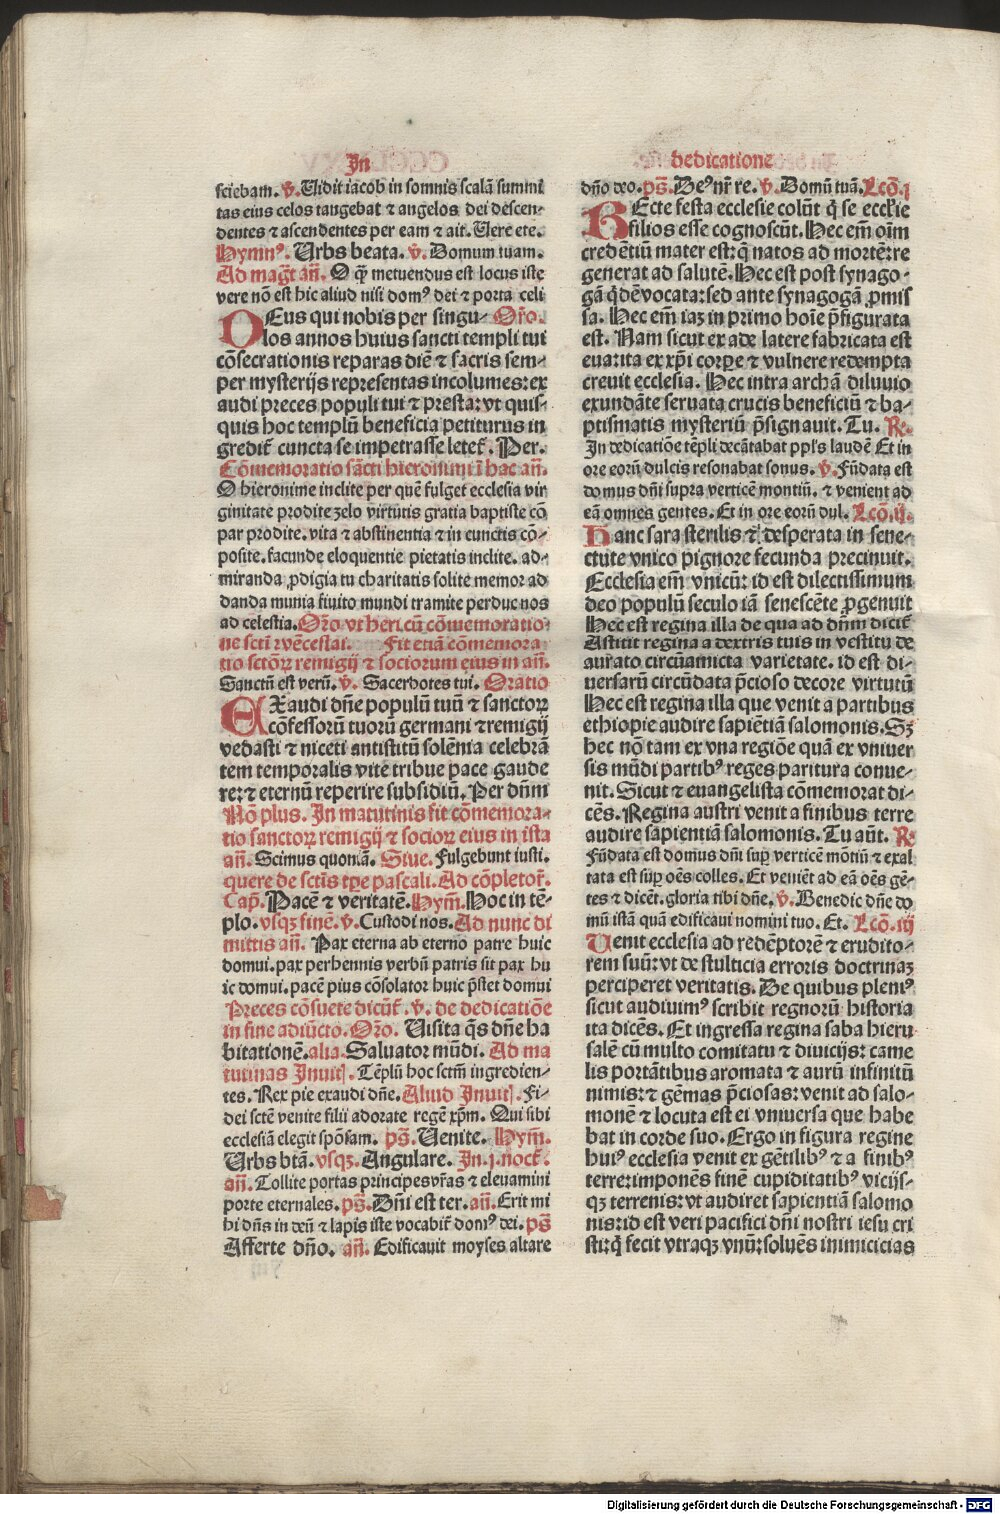 In
sciebam. ℣. Uidit iacob in somnis scalā summi
tas eius celos tangebat ⁊ angelos dei descen-
dentes ⁊ ascendentes per eam ⁊ ait. Uere ete.
Hymnꝰ. Urbs beata. ℣. Domum tuam.
Ad mag̃t añ. O q̃ metuendus est locus iste
vere nō est hic aliud nisi domꝰ dei ⁊ porta celi
DEus qui nobis per singu- Oro.
los annos huius sancti templi tui
cōsecrationis reparas diē ⁊ sacris sem-
per mysterijs representas incolumes: ex
audi preces populi tui ⁊ presta: vt quis-
quis hoc templū beneficia petiturus in
gredit̃ cuncta se impetrasse letet̃. Per.
Cōmemoratio sācti hieronimi ī hac añ.
O hieronime inclite per quē fulget ecclesia vir
ginitate prodite zelo virtutis gratia baptiste cō
par prodite. vita ⁊ abstinentia ⁊ in cunctis cō-
posite. facunde eloquentie pietatis inclite. ad-
miranda ꝓdigia tu charitatis solite memor ad
danda munia fiuito mundi tramite perduc nos
ad celestia. Oro vt heri. cū cōmemoratio-
ne scti wēceslai. Fit etiā cōmemora
tio sctōꝝ remigij ⁊ sociorum eius in añ.
Sanctū est verū. ℣. Sacerdotes tui. Oratio
EXaudi dñe populū tuū ⁊ sanctoꝝ
cōfessorū tuorū germani ⁊ remigij
vedasti ⁊ niceti antistitū solēnia celebrā
tem temporalis vite tribue pace gaude
re: ⁊ eternū reperire subsidiū. Per dñm
Nō plus. In matutinis fit cōmemora-
tio sanctoꝝ remigij ⁊ socioꝝ eius in ista
añ. Scimus quoniā. Siue. Fulgebunt iusti.
quere de sctis tꝑe pascali. Ad cōpletoꝝ.
Cap̃. Pacē ⁊ veritatē. Hym̃. Hoc in tē-
plo. vsqꝫ finē. ℣. Custodi nos. Ad nunc di
mittis añ. Pax eterna ab eterno patre huic
domui. pax perhennis verbū patris sit pax hu
ic domui. pacē pius cōsolator huic p̃stet domui
Preces cōsuete dicūt̃. ℣. de dedicatiōe
in fine adiūcto. Oro. Uisita q̃s dñe ha
bitationē. alia. Saluator mūdi. Ad ma
tutinas Inuit̃. Tēplū hoc sctm̃ ingredien-
tes. Rex pie exaudi dñe. Aliud Inuit̃. Fi-
dei sctē venite filii adorate regē xp̃m. Qui sibi
ecclesiā elegit spōsam. ps̃. Uenite. Hym̃.
Urbs btā. vsqꝫ. Angulare. In .j. noct̃.
añ. Tollite portas principes vr̃as ⁊ eleuamini
porte eternales. ps̃. Dñi est ter. añ. Erit mi
hi dñs in deū ⁊ lapis iste vocabit̃ domꝰ dei. ps̃
Afferte dño. añ. Edificauit moyses altare
dedicatione
dño deo. ps̃. Deꝰ nr̃ re. ℣. Domū tuā. Lcō. j
REcte festa ecclesie colūt q̃ se ecclie
filios esse cognoscūt. Hec em̃ oīm
credētiū mater est: q̃ natos ad mortē: re
generat ad salutē. Hec est post synago-
gā q̃dē vocata: sed ante synagogā ꝓmis
sa. Hec em̃ iaꝫ in primo hoīe p̃figurata
est. Nam sicut ex ade latere fabricata est
eua: ita ex xp̃i corꝑe ⁊ vulnere redempta
creuit ecclesia. Hec intra archā diluuio
exundāte seruata crucis beneficiū ⁊ ba-
ptismatis mysteriū p̃signauit. Tu. ℟.
In dedicatiōe tēpli decātabat ppl's laudē Et in
ore eorū dulcis resonabat sonus. ℣. Fūdata est
domus dñi supra verticē montiū. ⁊ venient ad
eā omnes gentes. Et in ore eorū dul. Lcō. ij.
Hanc sara sterilis ⁊ desperata in sene-
ctute vnico pignore fecunda precinuit.
Ecclesia em̃ vnicū: id est dilectissimum
deo populū seculo iā senescēte ꝓgenuit
Hec est regina illa de qua ad dñm dicit̃
Astitit regina a dextris tuis in vestitu de
aurato circūamicta varietate. id est di-
uersarū circūdata p̃cioso decore virtutū
Hec est regina illa que venit a partibus
ethiopie audire sapiētiā salomonis. Sꝫ
hec nō tam ex vna regiōe quā ex vniuer
sis mūdi partibꝰ reges paritura conue-
nit. Sicut ⁊ euangelista cōmemorat di-
cēs. Regina austri venit a finibus terre
audire sapientiā salomonis. Tu aūt. ℟.
Fūdata est domus dñi sup̃ verticē mōtiū ⁊ exal
tata est sup̃ oēs colles. Et veniēt ad eā oēs gē-
tes ⁊ dicēt. gloria tibi dñe. ℣. Benedic dñe do
mū istā quā edificaui nomini tuo. Et. Lcō. iij
Uenit ecclesia ad redēptorē ⁊ erudito-
rem suū: vt de stulticia erroris doctrinaꝫ
perciperet veritatis. De quibus plenꝰ
sicut audiuimꝰ scribit regnorū historia
ita dicēs. Et ingressa regina saba hieru
salē cū multo comitatu ⁊ diuicijs: came
lis portātibus aromata ⁊ aurū infinitū
nimis: ⁊ gēmas p̃ciosas: venit ad salo-
monē ⁊ locuta est ei vniuersa que habe
bat in corde suo. Ergo in figura regine
huiꝰ ecclesia venit ex gētilibꝰ ⁊ a finibꝰ
terre: imponēs finē cupiditatibꝰ vicijs-
qꝫ terrenis: vt audiret sapientiā salomo
nis: id est veri pacifici dñi nostri iesu cri
sti: q̃ fecit vtraqꝫ vnū: soluēs inimicicias
Digitalisierung gefördert durch die Deutsche Forschungsgemeinschaft - DFG